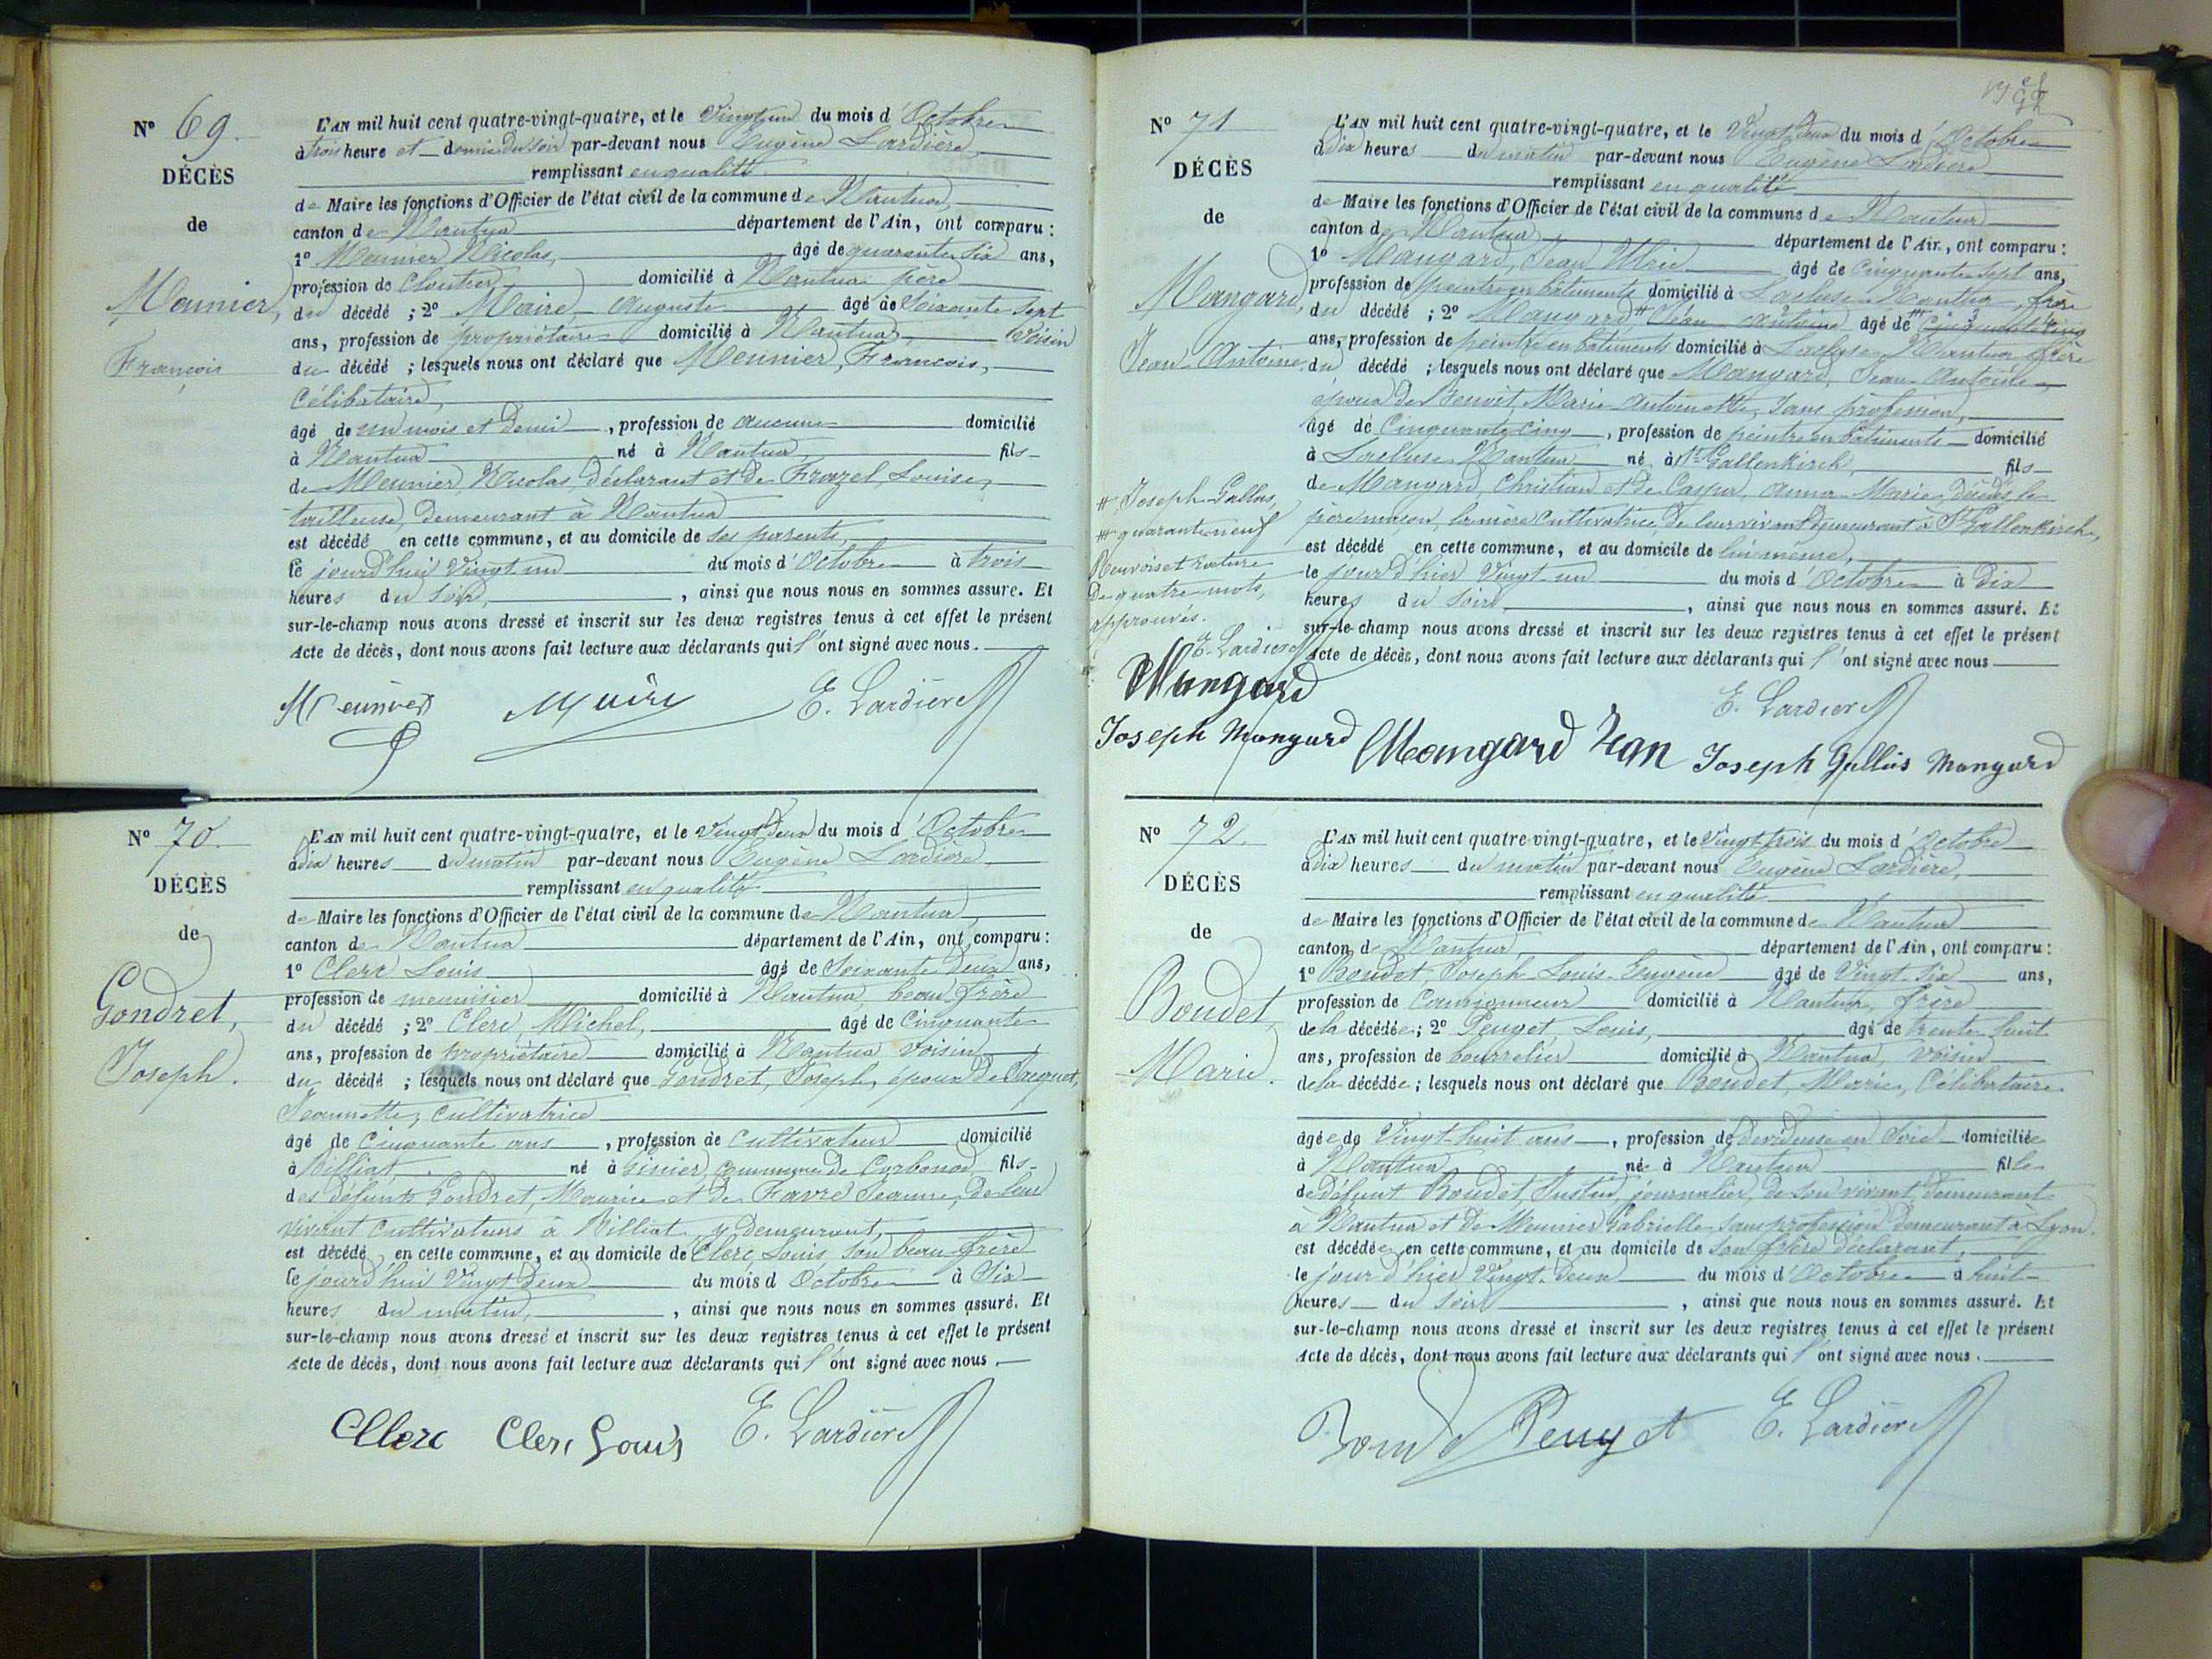 Nº 69.
DÉCÈS
de
Meunier,
François
L'AN mil huit cent quatre-vingt-quatre, et le Vingt un du mois d'Octobre
à trois heure et demie du soir par-devant nous Eugène Lardière,
remplissant en qualité
de Maire les fonctions d'Officier de l'état civil de la commune de Nantua,
canton de Nantua département de l'Ain, ont comparu :
1º Meunier Nicolas, âgé de quarante six ans,
profession de Cloutier domicilié à Nantua père
du décédé ; 2º Maire, Auguste âgé de Soixante sept
ans, profession de propriétaire domicilié à Nantua, Voisin
du décédé ; lesquels nous ont déclaré que Meunier, François,
Célibataire,
âgé de un mois et demi , profession de aucune domicilié
à Nantua né à Nantua, fils
de Meunier, Nicolas, déclarant et de Frazel, Louise,
tailleuse, demeurant à Nantua
est décédé en cette commune, et au domicile de ses parents,
le jourd'hui Vingt un du mois d'Octobre à trois
heures du Soir, , ainsi que nous nous en sommes assuré. Et
sur-le-champ nous avons dressé et inscrit sur les deux registres tenus à cet effet le présent
Acte de décès, dont nous avons fait lecture aux déclarants qui l'ont signé avec nous.
Meunier Maire E. Lardière
Nº 70.
DÉCÈS
de
Gondret,
Joseph.
L'AN mil huit cent quatre-vingt-quatre, et le Vingt deux du mois d'Octobre
à dix heures du matin par-devant nous Eugène Lardière,
remplissant en qualité
de Maire les fonctions d'Officier de l'état civil de la commune de Nantua,
canton de Nantua département de l'Ain, ont comparu :
1º Clerc Louis âgé de Soixante deux ans,
profession de menuisier domicilié à Nantua, beau frère
du décédé ; 2º Clerc, Michel, âgé de Cinquante
ans, profession de propriétaire domicilié à Nantua Voisin
du décédé ; lesquels nous ont déclaré que Gondret, Joseph, époux de Jacquet,
Jeannette, Cultivatrice
âgé de Cinquante ans , profession de Cultivateur domicilié
à Billiat, né à Ginier, Commune de Corbonod fils
des défunts Gondret, Maurice et de Favre Jeanne, de leur
vivant Cultivateurs à Billiat, y demeurant,
est décédé en cette commune, et au domicile de Clerc, Louis, son beau frère
le jourd'hui Vingt deux du mois d'Octobre à Six
heures du matin, , ainsi que nous nous en sommes assuré. Et
sur-le-champ nous avons dressé et inscrit sur les deux registres tenus à cet effet le présent
Acte de décès, dont nous avons fait lecture aux déclarants qui l'ont signé avec nous.
Clerc Clerc Louis E. Lardière
Nº 71
DÉCÈS
de
Mangard,
Jean-Antoine
L'AN mil huit cent quatre-vingt-quatre, et le Vingt deux du mois d'Octobre
à dix heures du matin par-devant nous Eugène Lardière
remplissant en qualité
de Maire les fonctions d'Officier de l'état civil de la commune de Nantua
canton de Nantua, département de l'Ain, ont comparu :
1º Mangard, Jean Ulric âgé de Cinquante Sept ans,
profession de peintre en bâtiments domicilié à Lacluse-Nantua, frère
du décédé ; 2º Mangard # Jean Antoine âgé de # Cinquante cinq
ans, profession de peintre en bâtiments domicilié à Lacluse-Nantua frère
du décédé ; lesquels nous ont déclaré que Mangard, Jean-Antoine
époux de Benoit, Marie Antoinette, Sans profession,
âgé de Cinquante Cinq , profession de peintre en bâtiments domicilié
à Lacluse-Nantua né à St Gallenkirch, fils
de Mangard, Christian et de Caspar, Anna Marie, décédés le
père maçon, la mère Cultivatrice, de leur vivant demeurant à St Gallenkirch,
est décédé en cette commune, et au domicile de lui-même,
le jour d'hier Vingt un du mois d'Octobre à dix
heures du Soir, , ainsi que nous nous en sommes assuré. Et
sur-le-champ nous avons dressé et inscrit sur les deux registres tenus à cet effet le présent
Acte de décès, dont nous avons fait lecture aux déclarants qui l'ont signé avec nous
# Joseph-Gallus,
# quarante-neuf
Renvois et rature
de quatre mots,
approuvés.
E. Lardière
Mangard
E. Lardière
Joseph Mangard Mangard Jean Joseph Gallus Mangard
Nº 72.
DÉCÈS
de
Boudet,
Marie.
L'AN mil huit cent quatre-vingt-quatre, et le Vingt trois du mois d'Octobre
à dix heures du matin par-devant nous Eugène Lardière,
remplissant en qualité
de Maire les fonctions d'Officier de l'état civil de la commune de Nantua
canton de Nantua, département de l'Ain, ont comparu :
1º Boudet, Joseph-Louis-Eugène âgé de Vingt Six ans,
profession de Camionneur domicilié à Nantua, frère
de la décédée ; 2º Peuget, Louis, âgé de trente huit
ans, profession de bourrelier domicilié à Nantua, voisin
de la décédée ; lesquels nous ont déclaré que Boudet, Marie, Célibataire
âgée de Vingt-huit ans , profession de devideuse en Soie domiciliée
à Nantua née à Nantua fille
de défunt Boudet, Justin, journalier, de son vivant, demeurant
à Nantua et de Meunier Gabrielle, sans profession demeurant à Lyon.
est décédée en cette commune, et au domicile de Son frère déclarant,
le jour d'hier Vingt-deux du mois d'Octobre à huit
heures du Soir , ainsi que nous nous en sommes assuré. Et
sur-le-champ nous avons dressé et inscrit sur les deux registres tenus à cet effet le présent
Acte de décès, dont nous avons fait lecture aux déclarants qui l'ont signé avec nous.
Boudet Peuget E. Lardière